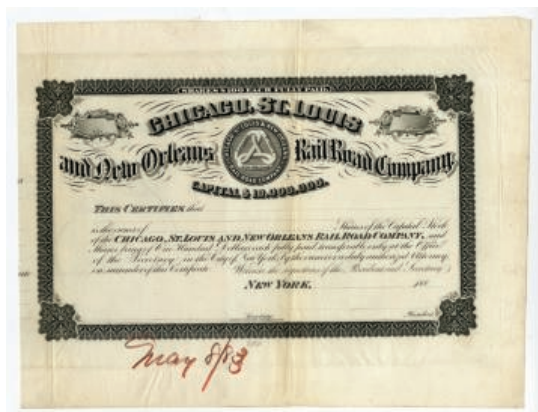 SHARES $100 EACH FULLY PAID.
CHICAGO, ST. LOUIS
and New Orleans Rail Road Company
CAPITAL $10,000,000.
THIS CERTIFIES that
is the owner of Shares of the Capital Stock
of the CHICAGO, ST. LOUIS AND NEW ORLEANS RAIL ROAD COMPANY, said
Shares being of One Hundred Dollars each fully paid transferable only at the Office
of the Secretary in the City of New York by the owner or duly authorized Attorney,
on surrender of this Certificate. Witness the signatures of the President and Secretary
NEW YORK, 188
Secretary President
May 8/83